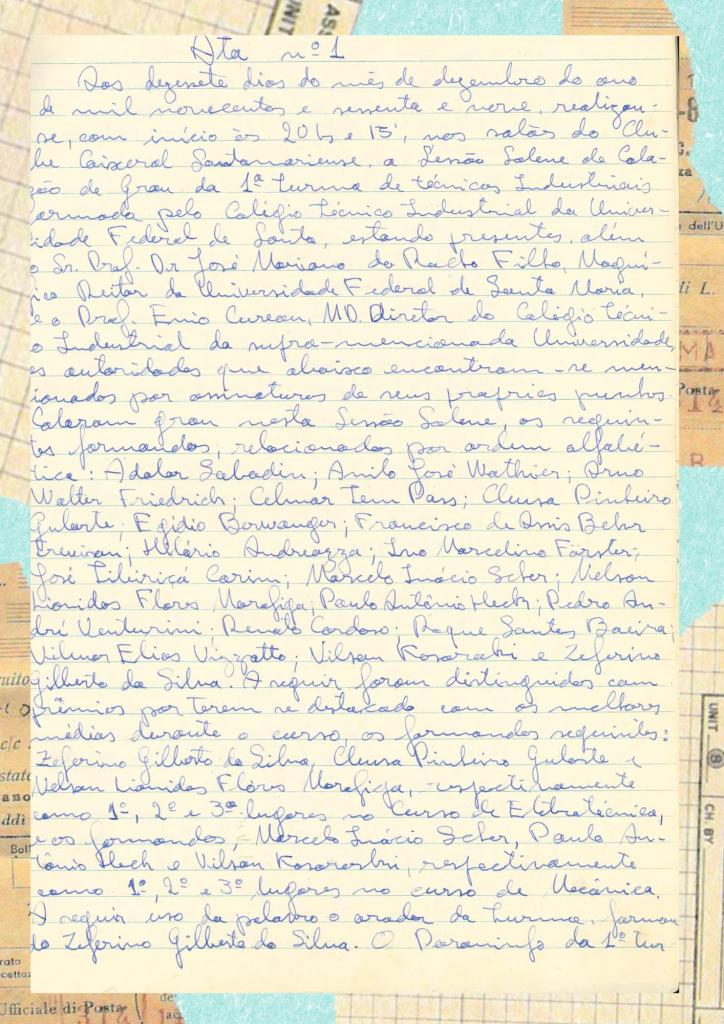 Ata nº 1
Aos dezessete dias do mês de dezembro do ano
de mil novecentos e sessenta e nove, realizou-
se, com início às 20 hs e 15', nos salões do Clu-
be Caixeral Santamariense, a Sessão Solene de Cola-
ção de Grau da 1ª turma de técnicos Industriais
ormada pelo Colégio Técnico Industrial da Univer-
idade Federal de Santa, estando presentes, além
o Sr. Prof. Dr José Mariano da Rocha Filho, Magní-
ico Reitor da Universidade Federal de Santa Maria,
e o Prof. Enio Cureau, MD. Diretor do Colégio Técni-
o Industrial da supra-mencionada Universidade,
as autoridades que abaixo encontram-se men-
ionados por assinaturas de seus próprios punhos.
Colaram grau nesta Sessão Solene, os seguin-
tes formandos, relacionados por ordem alfabé-
tica: Adalar Sabadin; Anilo José Wathier; Arno
Walter Friedrich; Celmar Tem Pass; Cleusa Pinheiro
Gularte; Egidio Berwanger; Francisco de Assis Behr
Trevisan; Hilário Andreazza; Ino Marcelino Förster;
José Tibiriçá Carim; Marcelo Inácio Scher; Nelson
Lionidos Flores Morafiga; Paulo Antônio Heck; Pedro An-
dré Venturini; Renato Cardoso; Roque Santos
Vilmar Elias Vizzotto; Vilson e Zeferino
Gilberto da Silva. A seguir foram distinguidos com
prêmios por terem se destacado com as melhores
médias durante o curso, os formandos seguintes:
Zeferino Gilberto da Silva, Cleusa Pinheiro Gularte e
Nelson Lionidos Flôres Morafiga, respectivamente
como 1º, 2º e 3º lugares no Curso de Eletrotécnica,
e os formandos, Marcelo Inácio Scher, Paulo An-
tônio Heck e Vilson, respectivamente
como 1º, 2º e 3º lugares no curso de Mecânica.
A seguir uso da palavra o orador da turma, forman
do Zeferino Gilberto da Silva. O Paraninfo da 1ª Tur-
ASS
UNIT
dell'U
di L.
MA
Posta
UNIT 8
CH. BY
Ufficiale di Posta